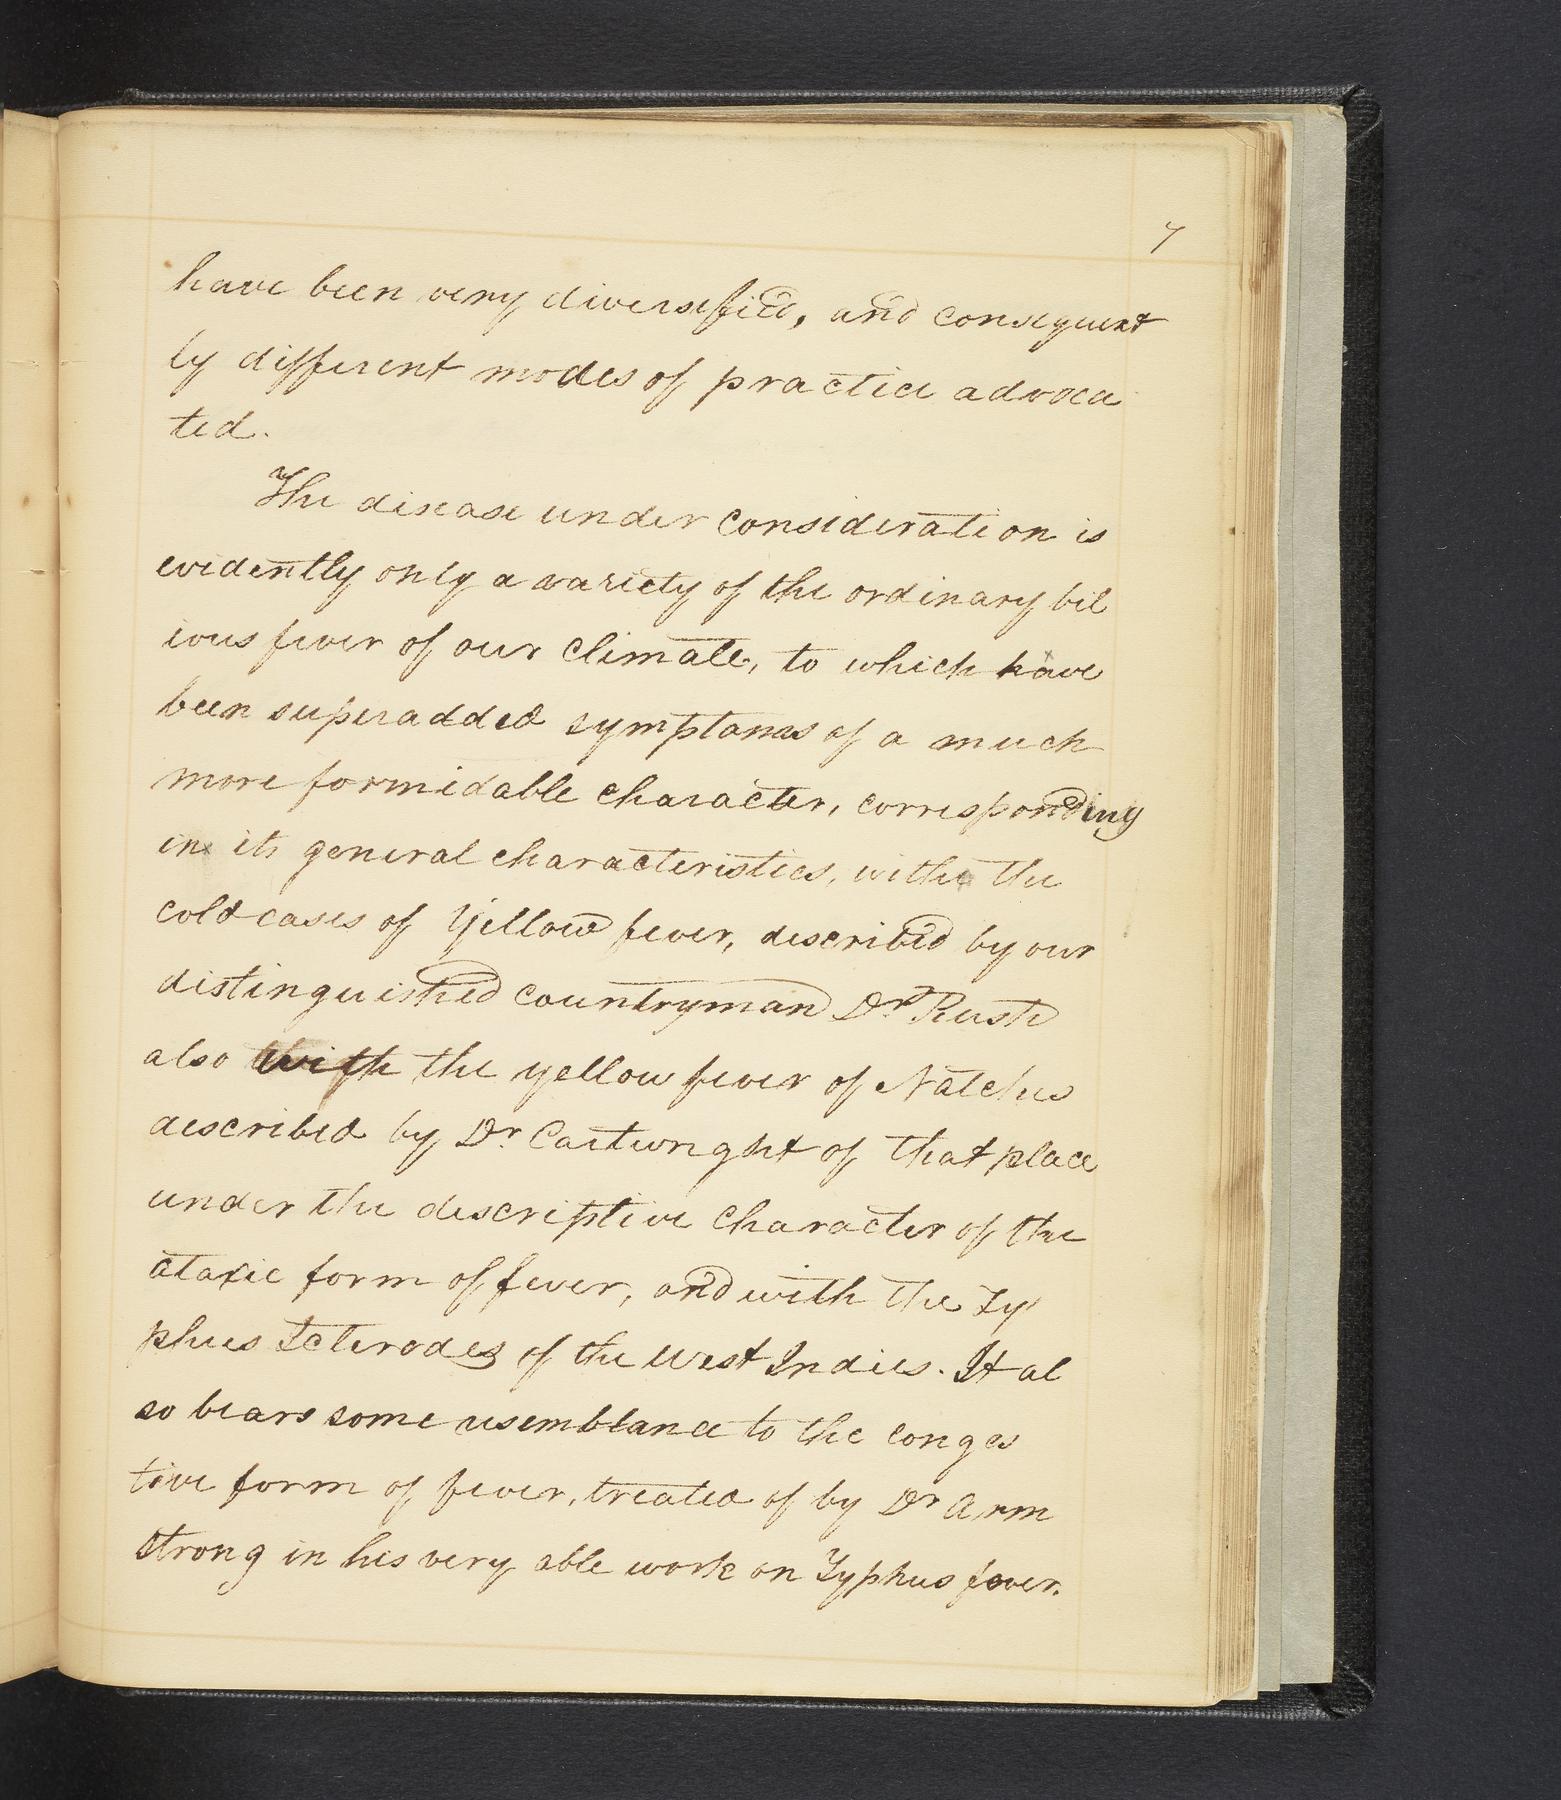 7
have been very diversified, and consequent
ly different modes of practice advoca
ted.
The disease under consideration is
evidently only a variety of the ordinary bil
ious fever of our climate, to which have
been superadded symptoms of a much
more formidable character, corresponding
in its general characteristics, with the
cold cases of Yellow fever, described by our
distinguished countryman Dr Rush
also with the yellow fever of Natches
described by Dr. Cartwright of that place
under the descriptive character of the
ataxic form of fever, and with the Ty
phus Icterodes of the West Indies. It al
so bears some resemblance to the conges
tive form of fever, treated of by Dr Arm
strong in his very able work on Typhus fever.